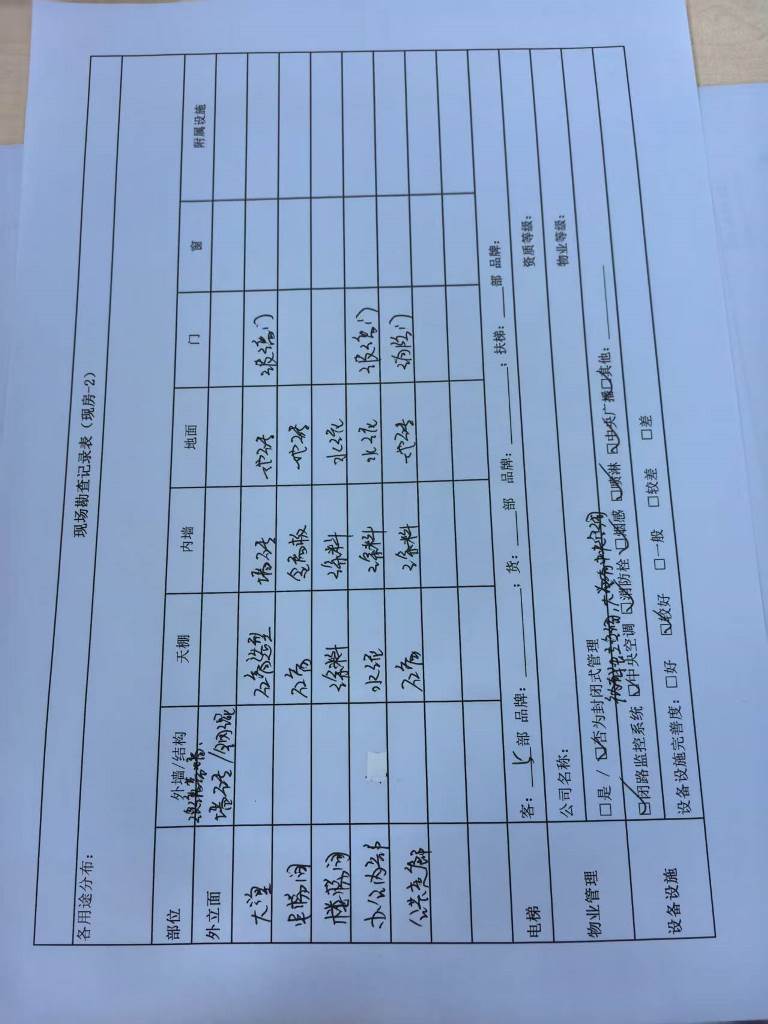 现场勘查记录表（现房-2）
各用途分布：
部位 外墙/结构 天棚 内墙 地面 门 窗 附属设施
外立面 墙砖/钢混
大堂 石膏造型 墙砖 地砖 玻璃门
电梯间 石膏 金属板 地砖
楼梯间 涂料 涂料 水泥
办公内部 水泥 涂料 水泥 玻璃门
公共走廊 石膏 涂料 地砖 消防门
电梯 客：部 品牌：；货：部 品牌：；扶梯：部 品牌：
物业管理 公司名称： 资质等级：
□是 / ☑否为封闭式管理 物业等级：
设备设施 ☑闭路监控系统 ☑中央空调 ☑消防栓 ☑烟感 ☑喷淋 ☑中央广播□其他：
设备设施完善度：□好 ☑较好 □一般 □较差 □差